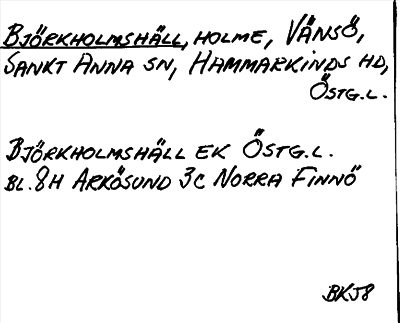 BJÖRKHOLMSHÄLL, HOLME, VÄNSÖ,
SANKT ANNA SN, HAMMARKINDS HD,
ÖSTG.L.
BJÖRKHOLMSHÄLL EK ÖSTG.L.
BL.8H ARKÖSUND 3C NORRA FINNÖ
BKJ8